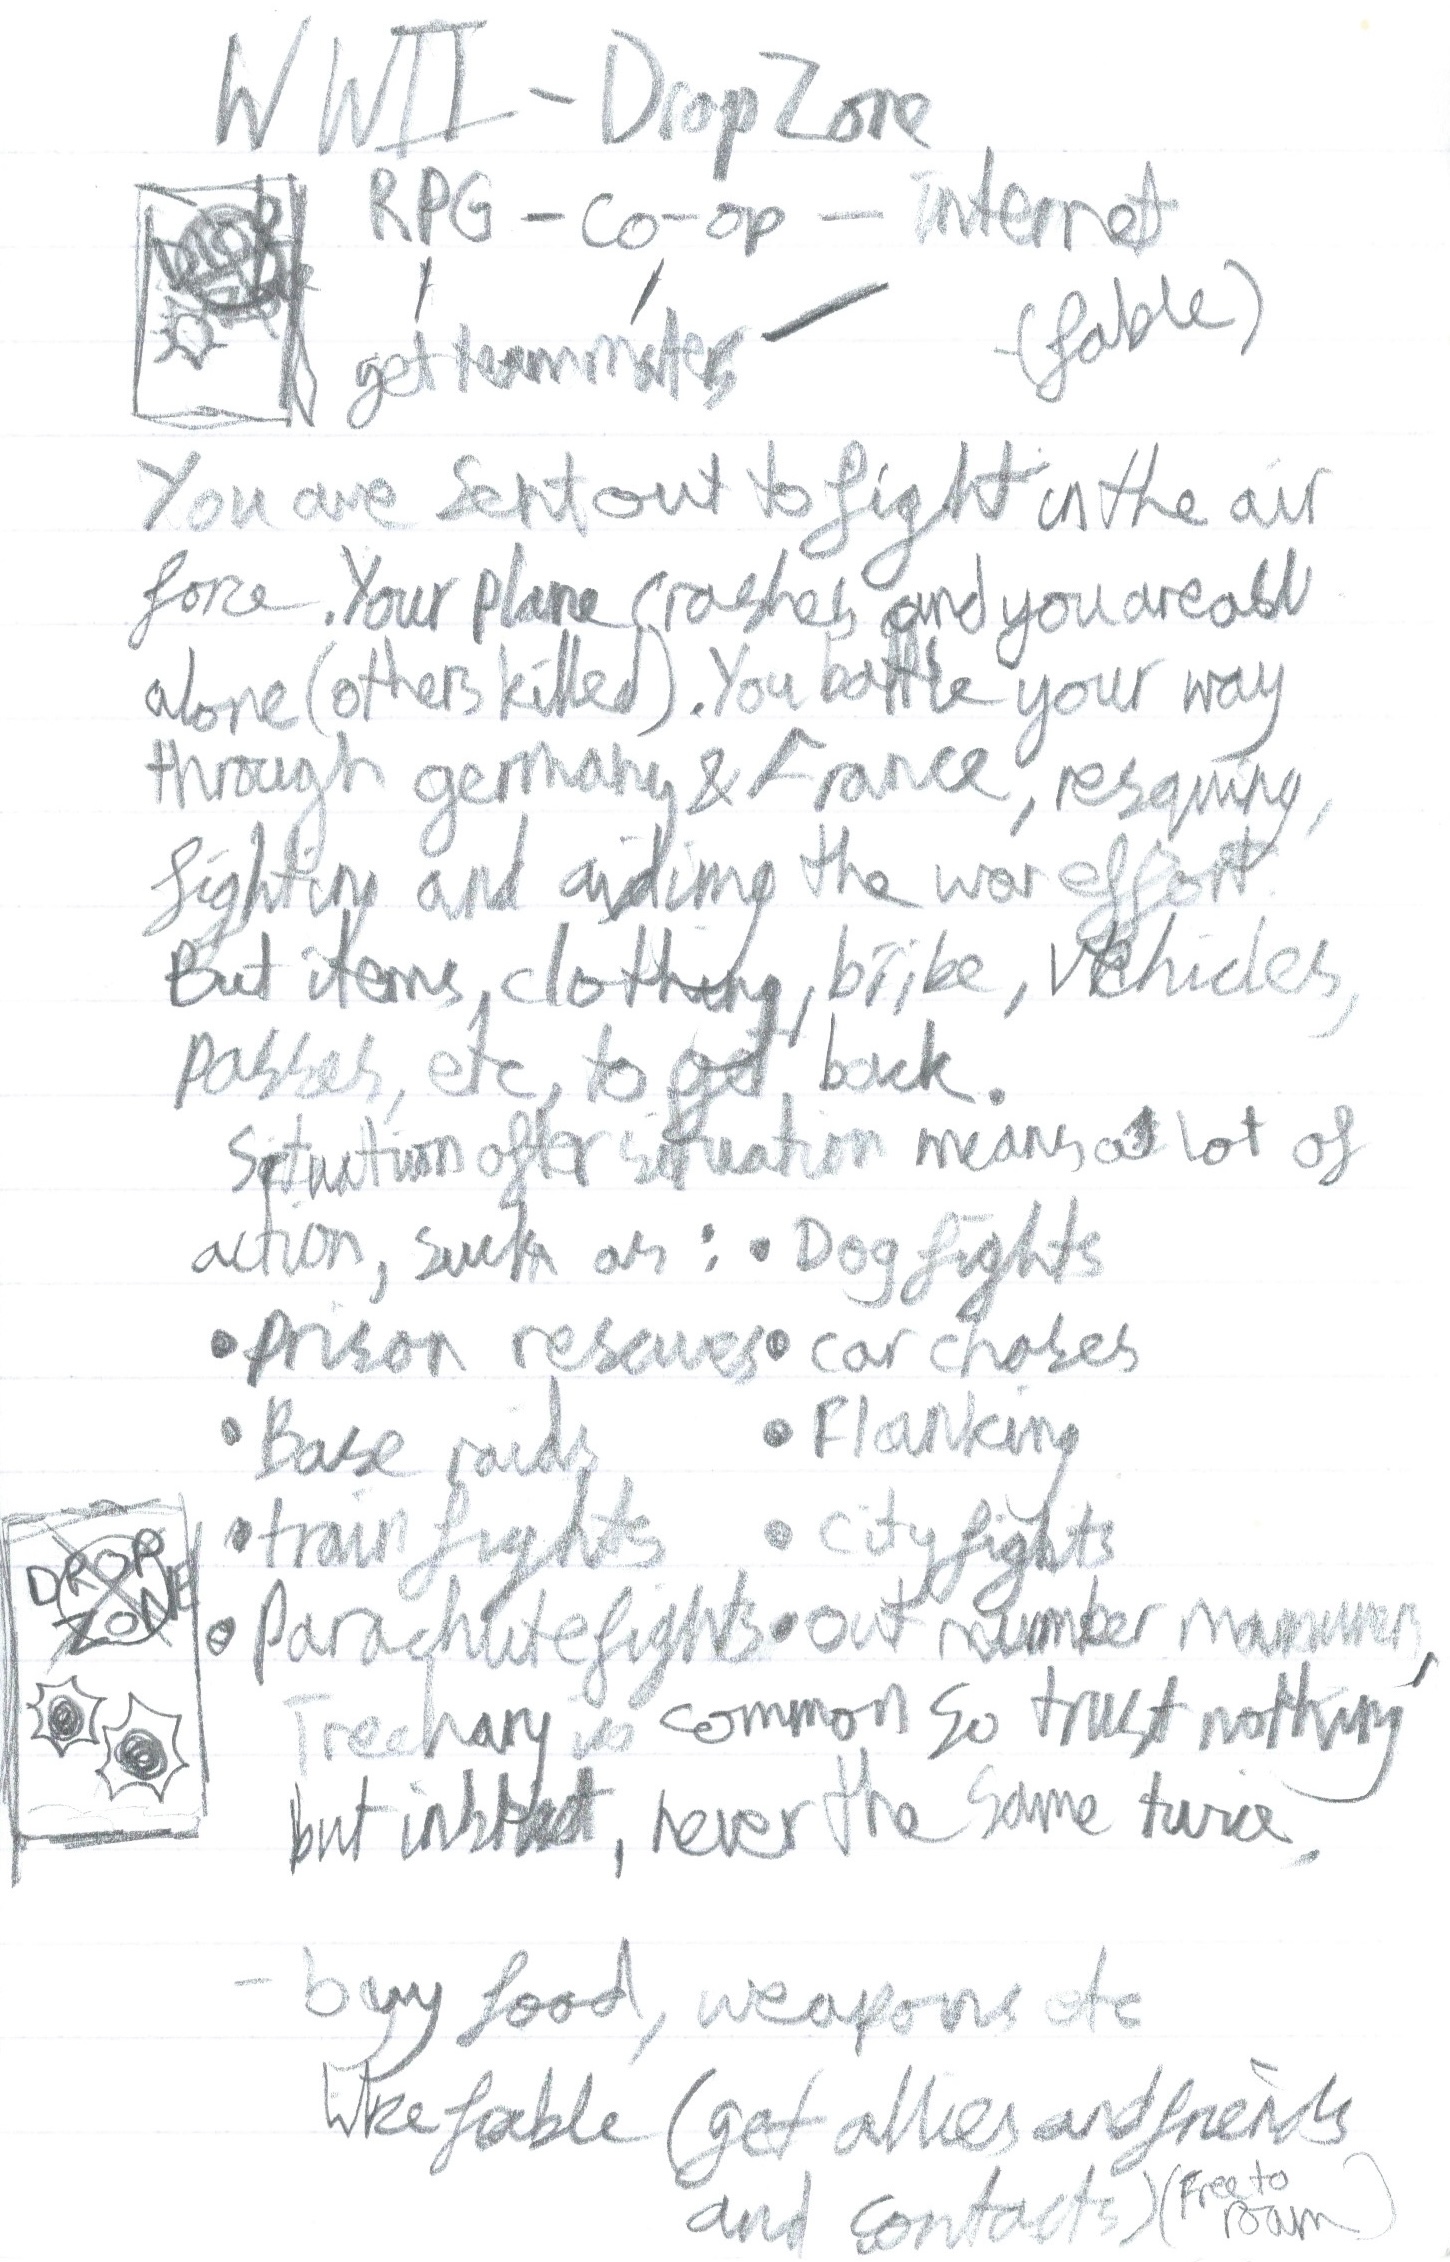 WWII - Drop Zone
RPG - Co-op - Internet
(fable)
get teammates
You are sent out to fight in the air
force. Your plane crashes and you are all
alone (others killed). You battle your way
through germany & France, resquing,
fighting and aiding the war effort.
But items, clothing, bribe, vehicles,
passes, etc, to get back.
Situation after situation means a lot of
action, such as : • Dog fights
• prison rescues • car chases
• Base raids • Flanking
• train fights • city fights
DROP
ZONE
• Parachute fights • out number
Trechary is common so trust nothing
but instinct, never the same twice,
- buy food, weapons etc
like fable (get allies and friends
and contacts) (Free to
roam)